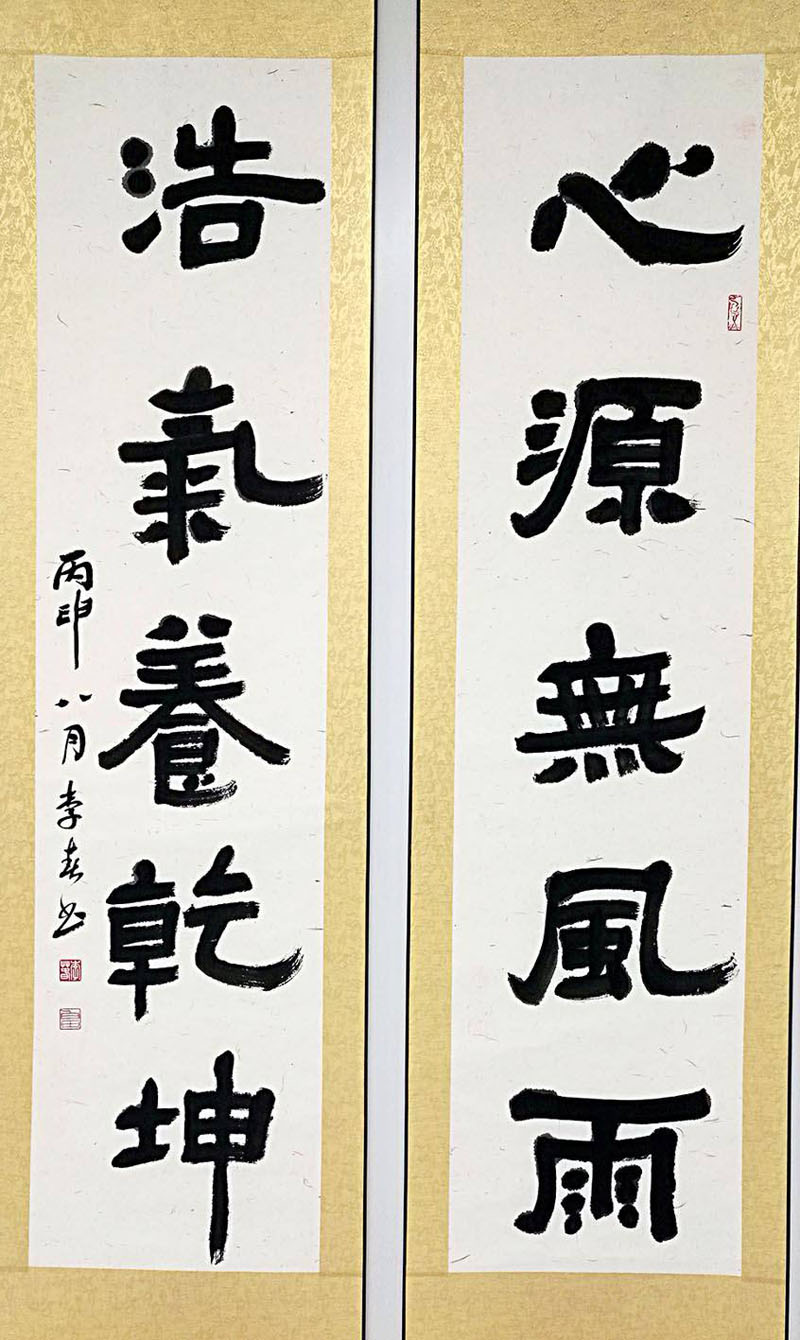 心源無風雨
浩氣養乾坤
丙申八月李春书